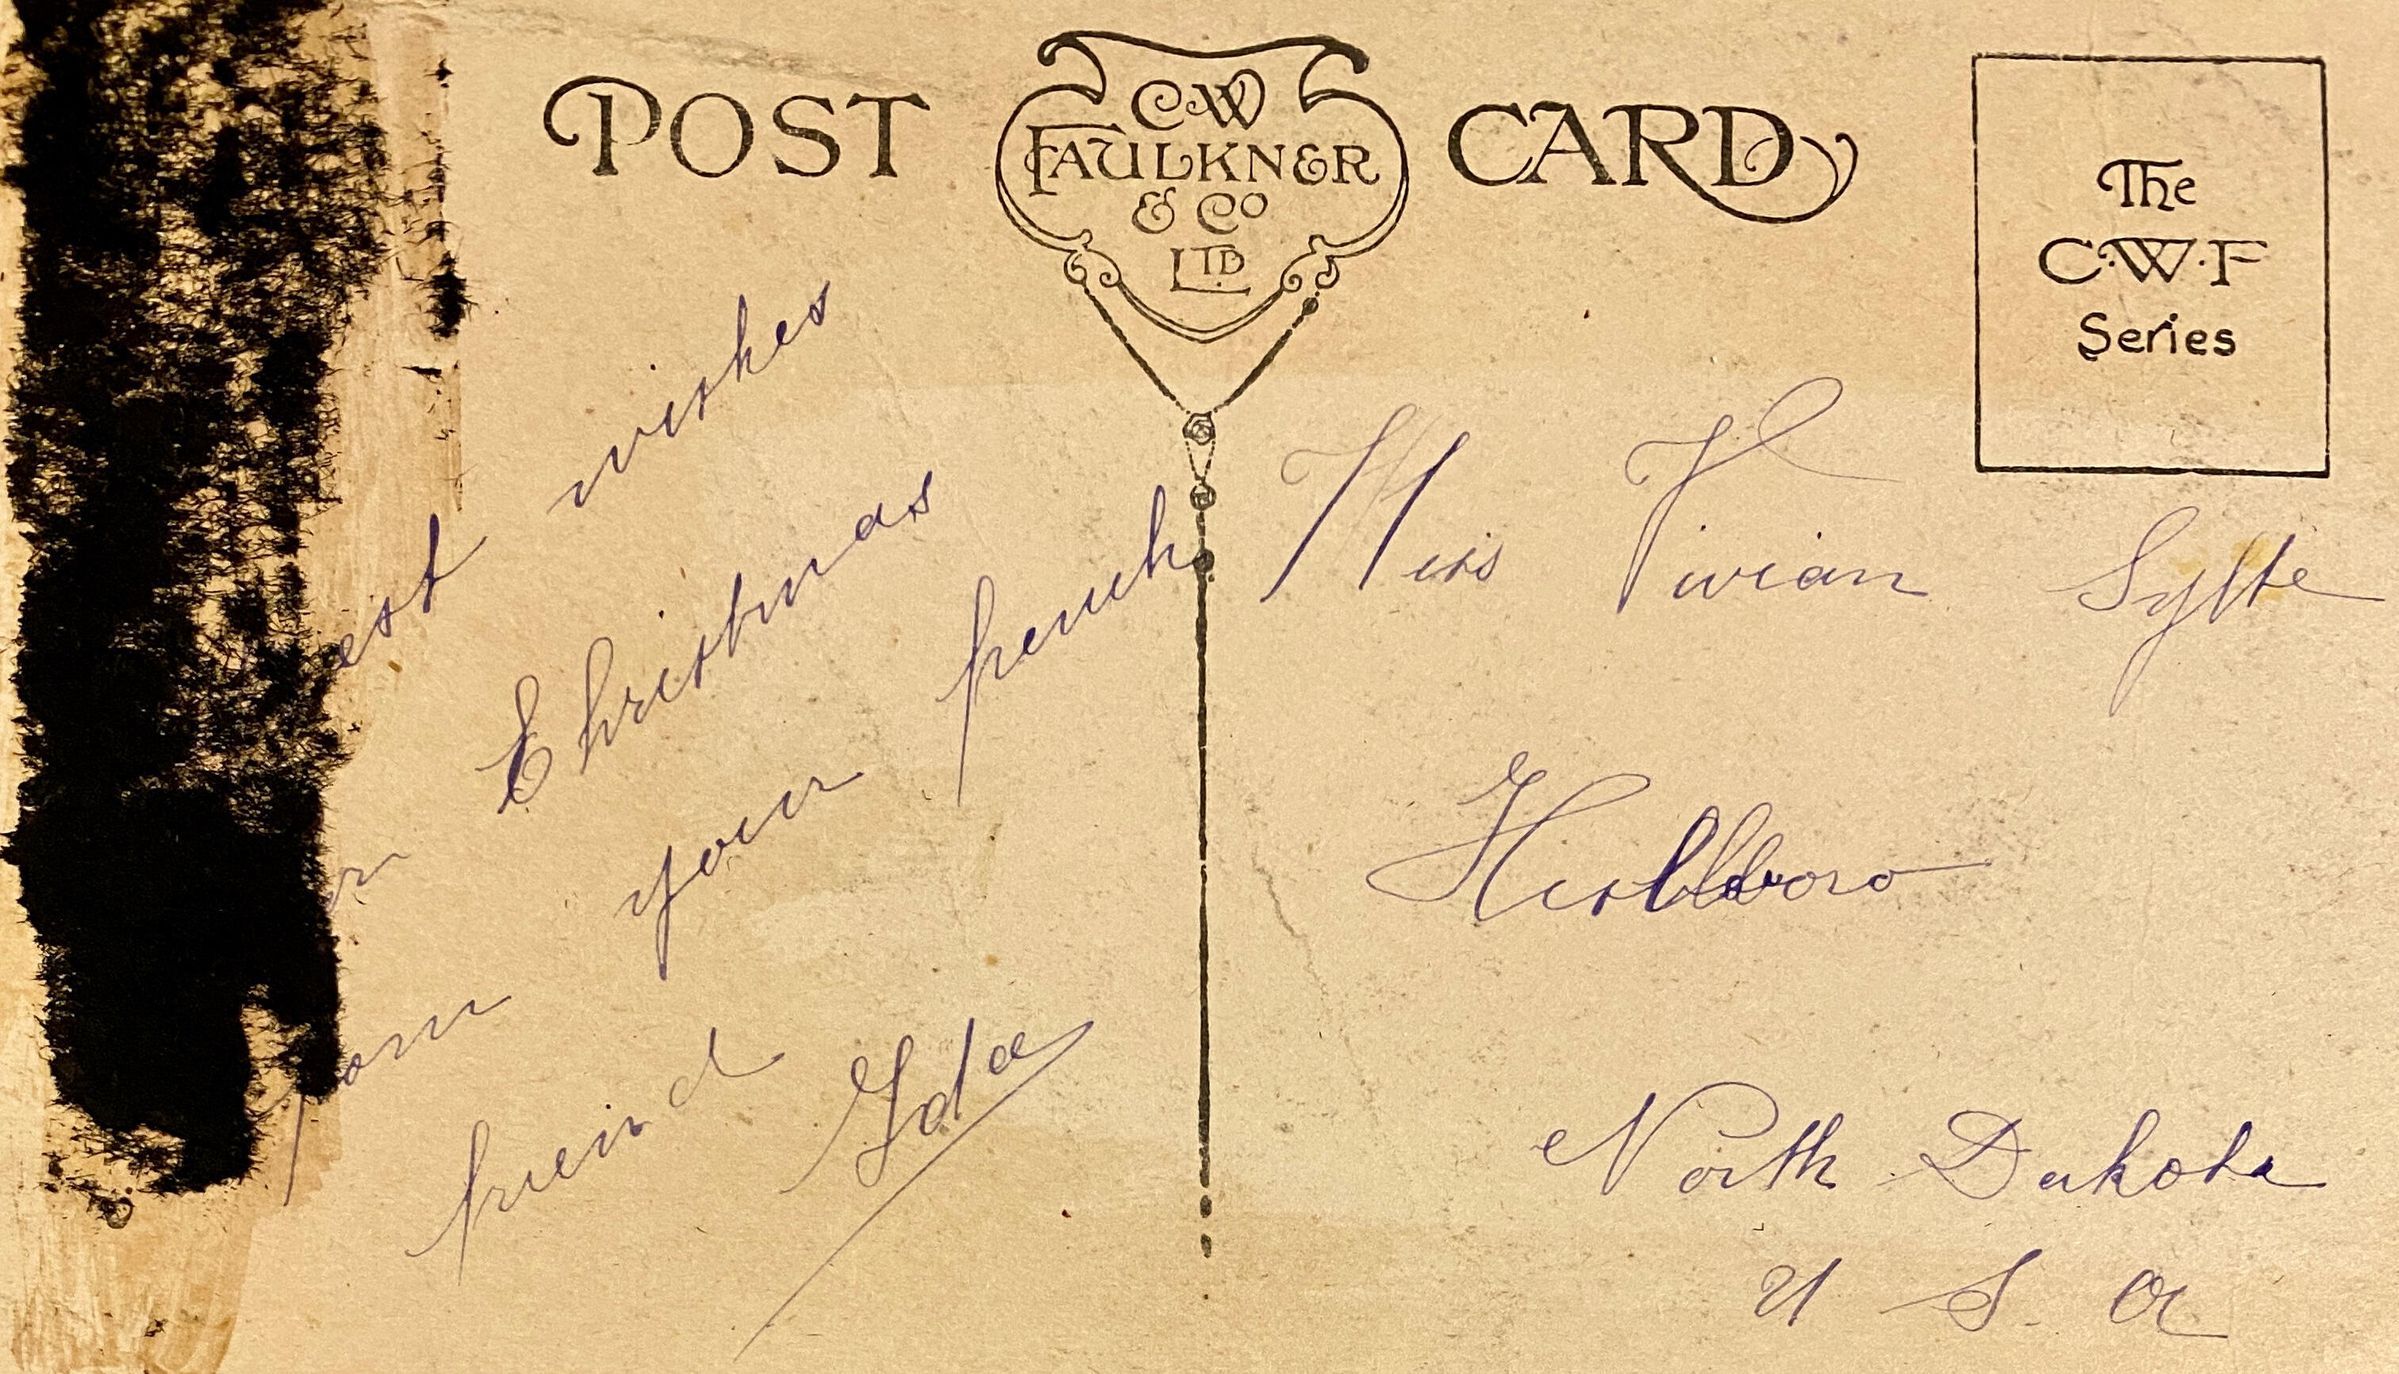 POST CARD
C.W.
FAULKNER
& Co
LTD
The
C.W.F
Series
est wishes
r Christmas
om your french
freind Ida
Miss Vivian Sylte
Hisllboro
North Dakota
U S. A